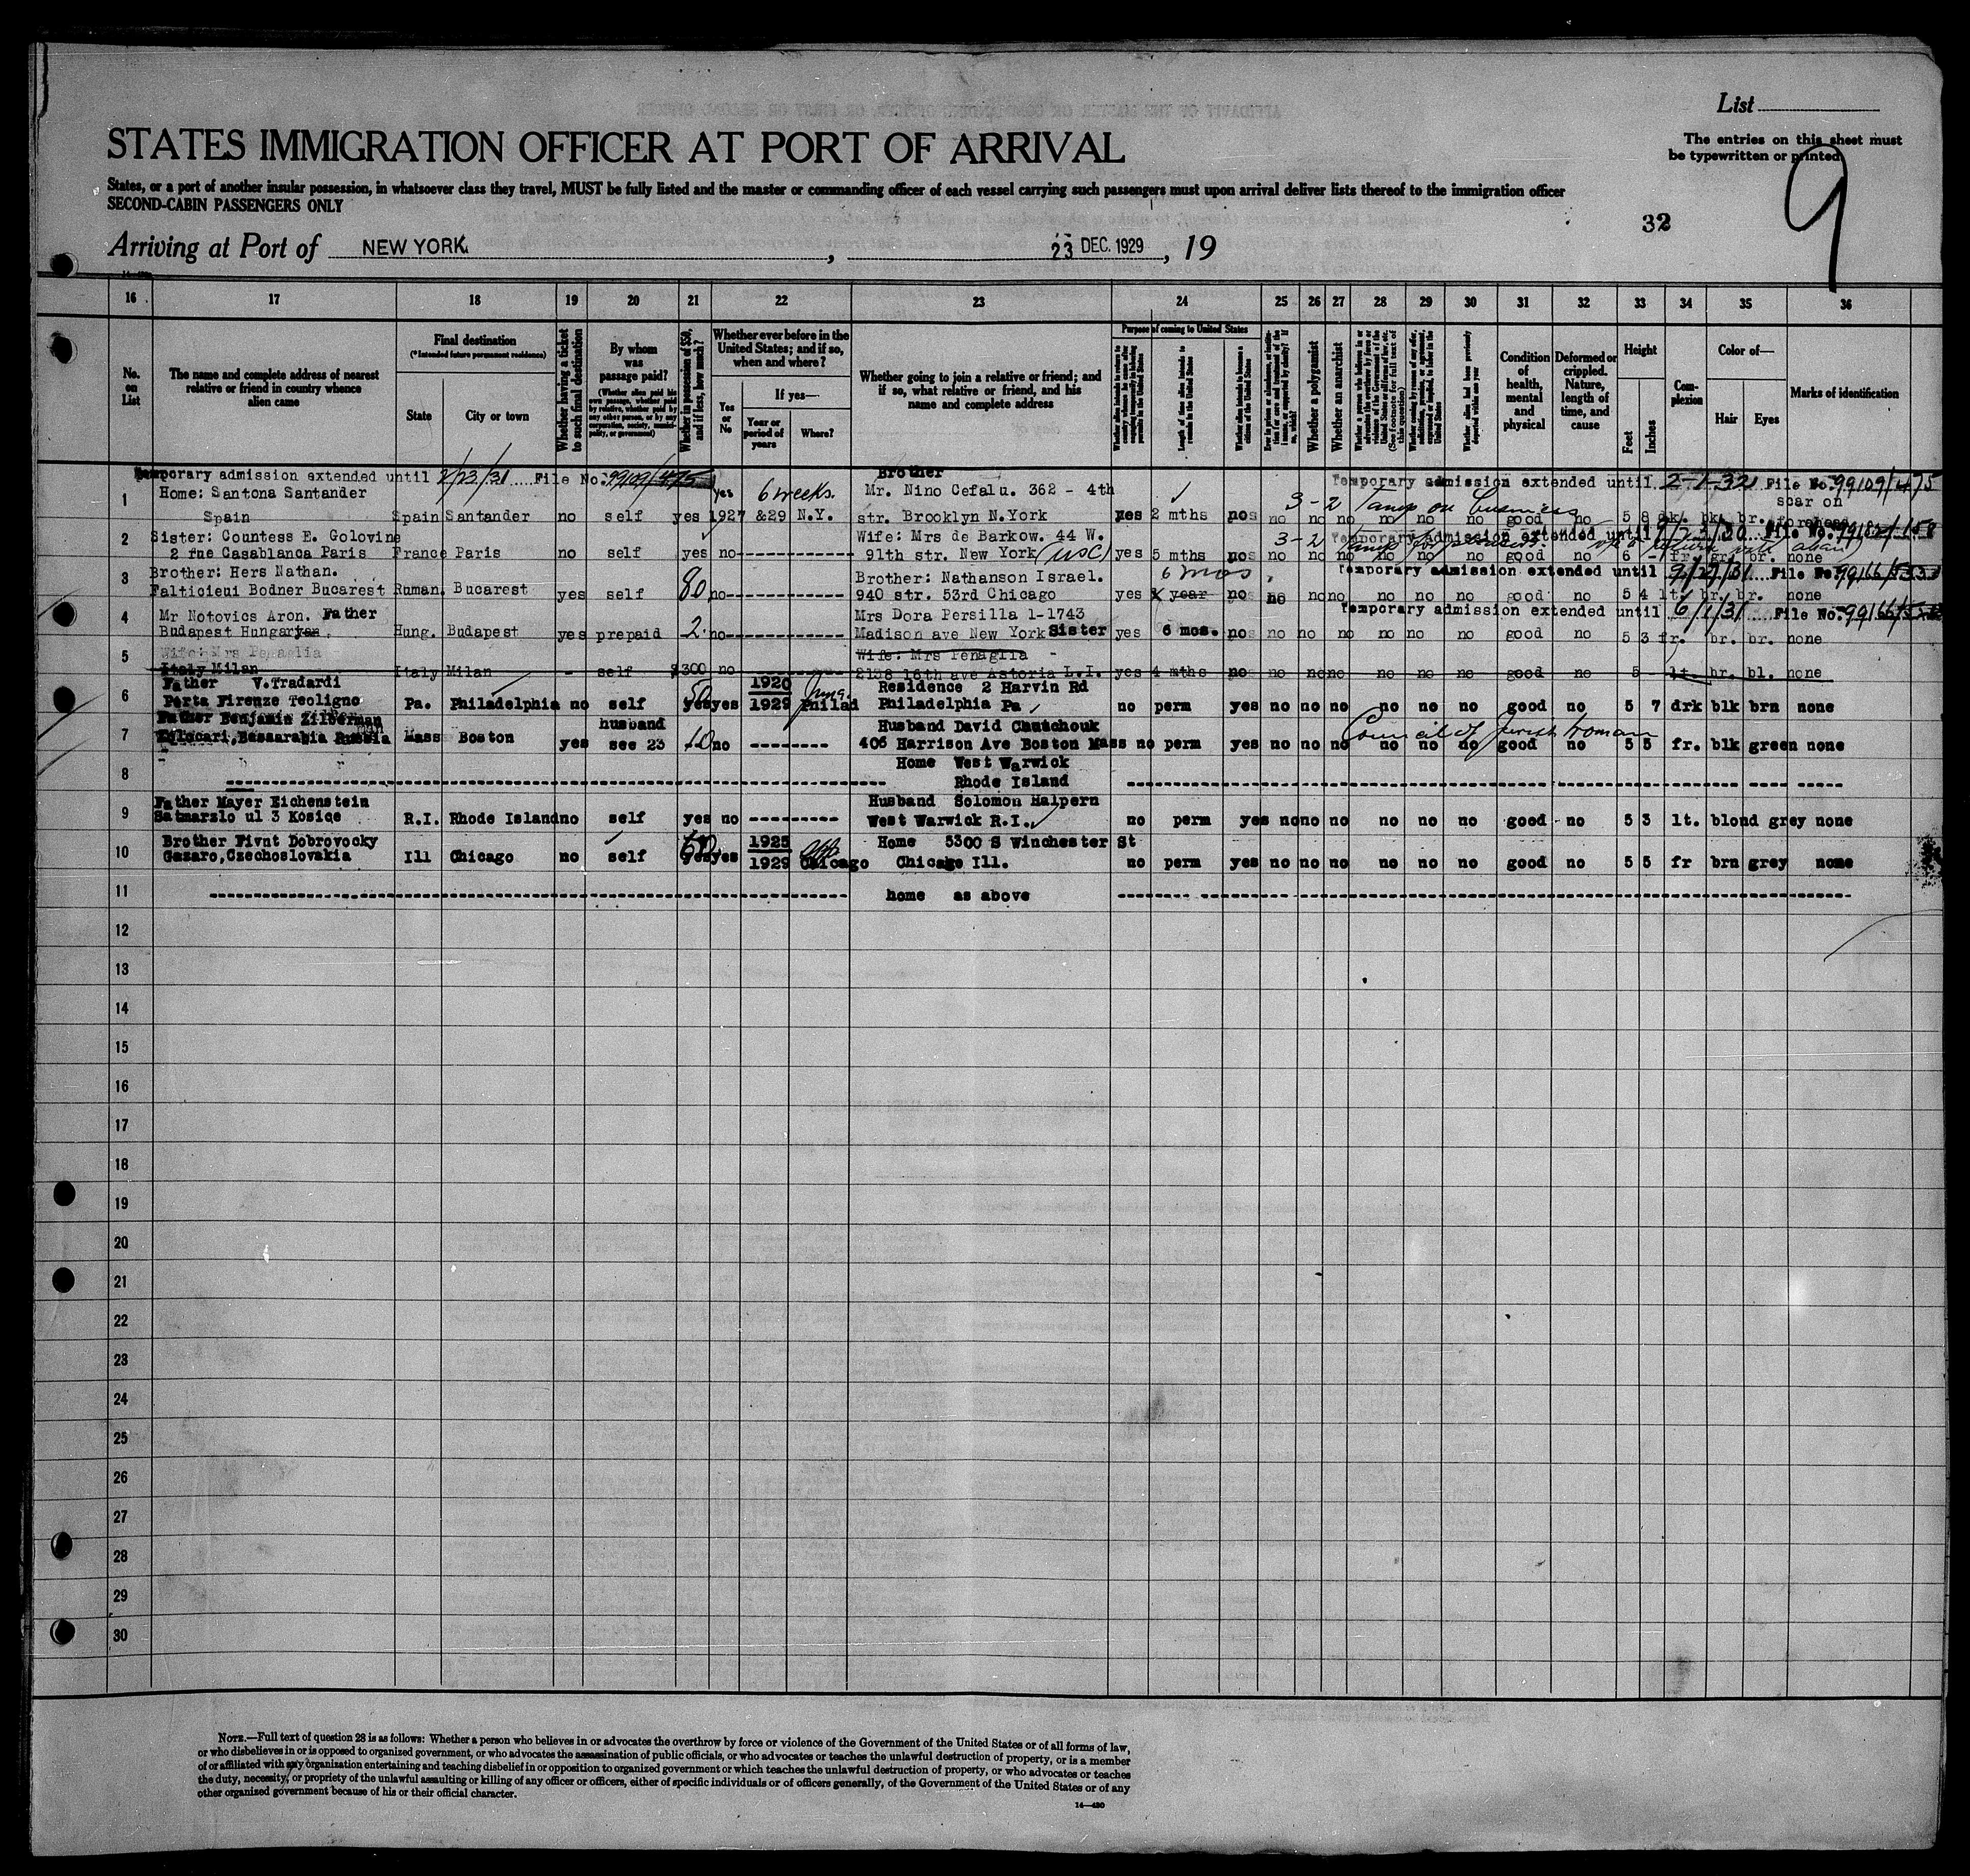 List
STATES IMMIGRATION OFFICER AT PORT OF ARRIVAL
The entries on this sheet must
be typewritten or printed
9
States, or a port of another insular possession, in whatsoever class they travel, MUST be fully listed and the master or commanding officer of each vessel carrying such passengers must upon arrival deliver lists thereof to the immigration officer
SECOND-CABIN PASSENGERS ONLY
32
Arriving at Port of NEW YORK, 23 DEC. 1929, 19
16 17 18 19 20 21 22 23 24 25 26 27 28 29 30 31 32 33 34 35 36
No. on List
The name and complete address of nearest relative or friend in country whence alien came
Final destination
(*Intended future permanent residence)
State
City or town
Whether having a ticket to such final destination
By whom was passage paid?
(Whether alien paid his own passage, whether paid by relative, whether paid by any other person, or by any corporation, society, municipality, or government)
Whether in possession of $50, and if less, how much?
Whether ever before in the United States; and if so, when and where?
Yes or No
If yes—
Year or period of years
Where?
Whether going to join a relative or friend; and if so, what relative or friend, and his name and complete address
Purpose of coming to United States
Length of time alien intends to remain in the United States
Whether alien intends to become a citizen of the United States
Whether a polygamist
Whether an anarchist
(See footnote for full text of this question)
Condition of health, mental and physical
Deformed or crippled. Nature, length of time, and cause
Height
Feet
Inches
Complexion
Color of—
Hair
Eyes
Marks of identification
Temporary admission extended until 2/23/31 File No. 99109/475
Brother
Temporary admission extended until 2-1-32 File No. 99109/475
1 Home: Santona Santander yes 6 weeks. Mr. Nino Cefalu. 362 - 4th 3-2 Temp on business scar on
Spain Spain Santander no self yes 1927 &29 N.Y. str. Brooklyn N.York yes 2 mths no no no no no no no good no 5 8 dk. bk. br. forehead
2 Sister: Countess E. Golovine Wife: Mrs de Barkow. 44 W. 3-2 Temporary admission extended until File No.
2 rue Casablanca Paris France Paris no self yes no 91th str. New York (USC) yes 5 mths no no no no no no no good no 6 - fr. gr. br. none
3 Brother: Hers Nathan. Brother: Nathanson Israel. 6 mos. Temporary admission extended until File No.
Falticieui Bodner Bucarest Ruman. Bucarest yes self 80 no 940 str. 53rd Chicago yes year no no no no no no no good no 5 4 lt. br. br. none
4 Mr Notovics Aron. Father Mrs Dora Persilla 1-1743 Temporary admission extended until 6/1/31 File No.
Budapest Hungaryen. Hung. Budapest yes prepaid 2. no Madison ave New York Sister yes 6 mos. no no no no no no no good no 5 3 fr. br. br. none
5 Wife: Mrs Penaglia Wife: Mrs Penaglia
Italy Milan Italy Milan - self $300 no 2138 16th ave Astoria L.I. yes 4 mths no no no no no no no good no 5 lt. br. bl. none
6 Father V.Tradardi 50 1920 Residence 2 Harvin Rd
Porta Firenze Teoligno Pa. Philadelphia no self yes yes 1929 Philad Philadelphia Pa no perm yes no no no no no no good no 5 7 drk blk brn none
7 Father Benjamin Zilberman husband Husband David Chutchouk Council of Jewish Woman
Bessarabia Russia Mass Boston yes see 23 10 no -------- 406 Harrison Ave Boston Mass no perm yes no no no no no no good no 5 5 fr. blk green none
8 Home West Warwick
Rhode Island
9 Father Mayer Eichenstein Husband Solomon Halpern
Satmarzlo ul 3 Kosice R.I. Rhode Island no self yes no --------- West Warwick R.I. no perm yes no no no no no no good no 5 3 lt. blond grey none
10 Brother Pivnt Dobrovocky 1925 Home 5300 S Winchester St
Gazaro, Czechoslovakia Ill Chicago no self yes yes 1929 Chicago Chicago Ill. no perm yes no no no no no no good no 5 5 fr brn grey none
11 home as above
12
13
14
15
16
17
18
19
20
21
22
23
24
25
26
27
28
29
30
NOTE.—Full text of question 28 is as follows: Whether a person who believes in or advocates the overthrow by force or violence of the Government of the United States or of all forms of law,
or who disbelieves in or is opposed to organized government, or who advocates the assassination of public officials, or who advocates or teaches the unlawful destruction of property, or is a member
of or affiliated with any organization entertaining and teaching disbelief in or opposition to organized government or which teaches the unlawful destruction of property, or who advocates or teaches
the duty, necessity, or propriety of the unlawful assaulting or killing of any officer or officers, either of specific individuals or of officers generally, of the Government of the United States or of any
other organized government because of his or their official character.
14—430